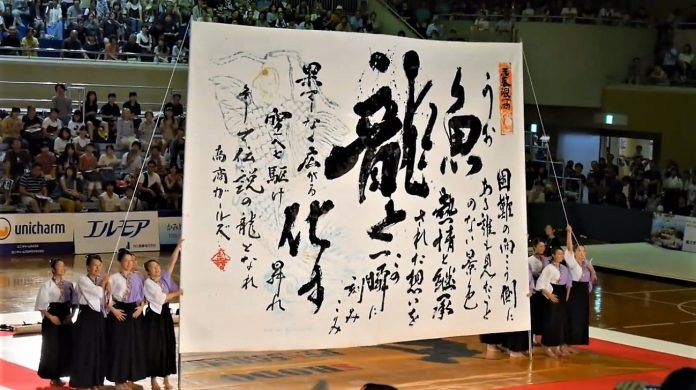 うお
魚
困難の向こう側に
ある誰も見たこと
のない景色
熱情と継承
された想いを
この
一瞬に
刻みこみ
龍と
化す
果てなく広がる
空へと駆け昇れ
そして伝説の龍となれ
高商ガールズ
unicharm
エルモア